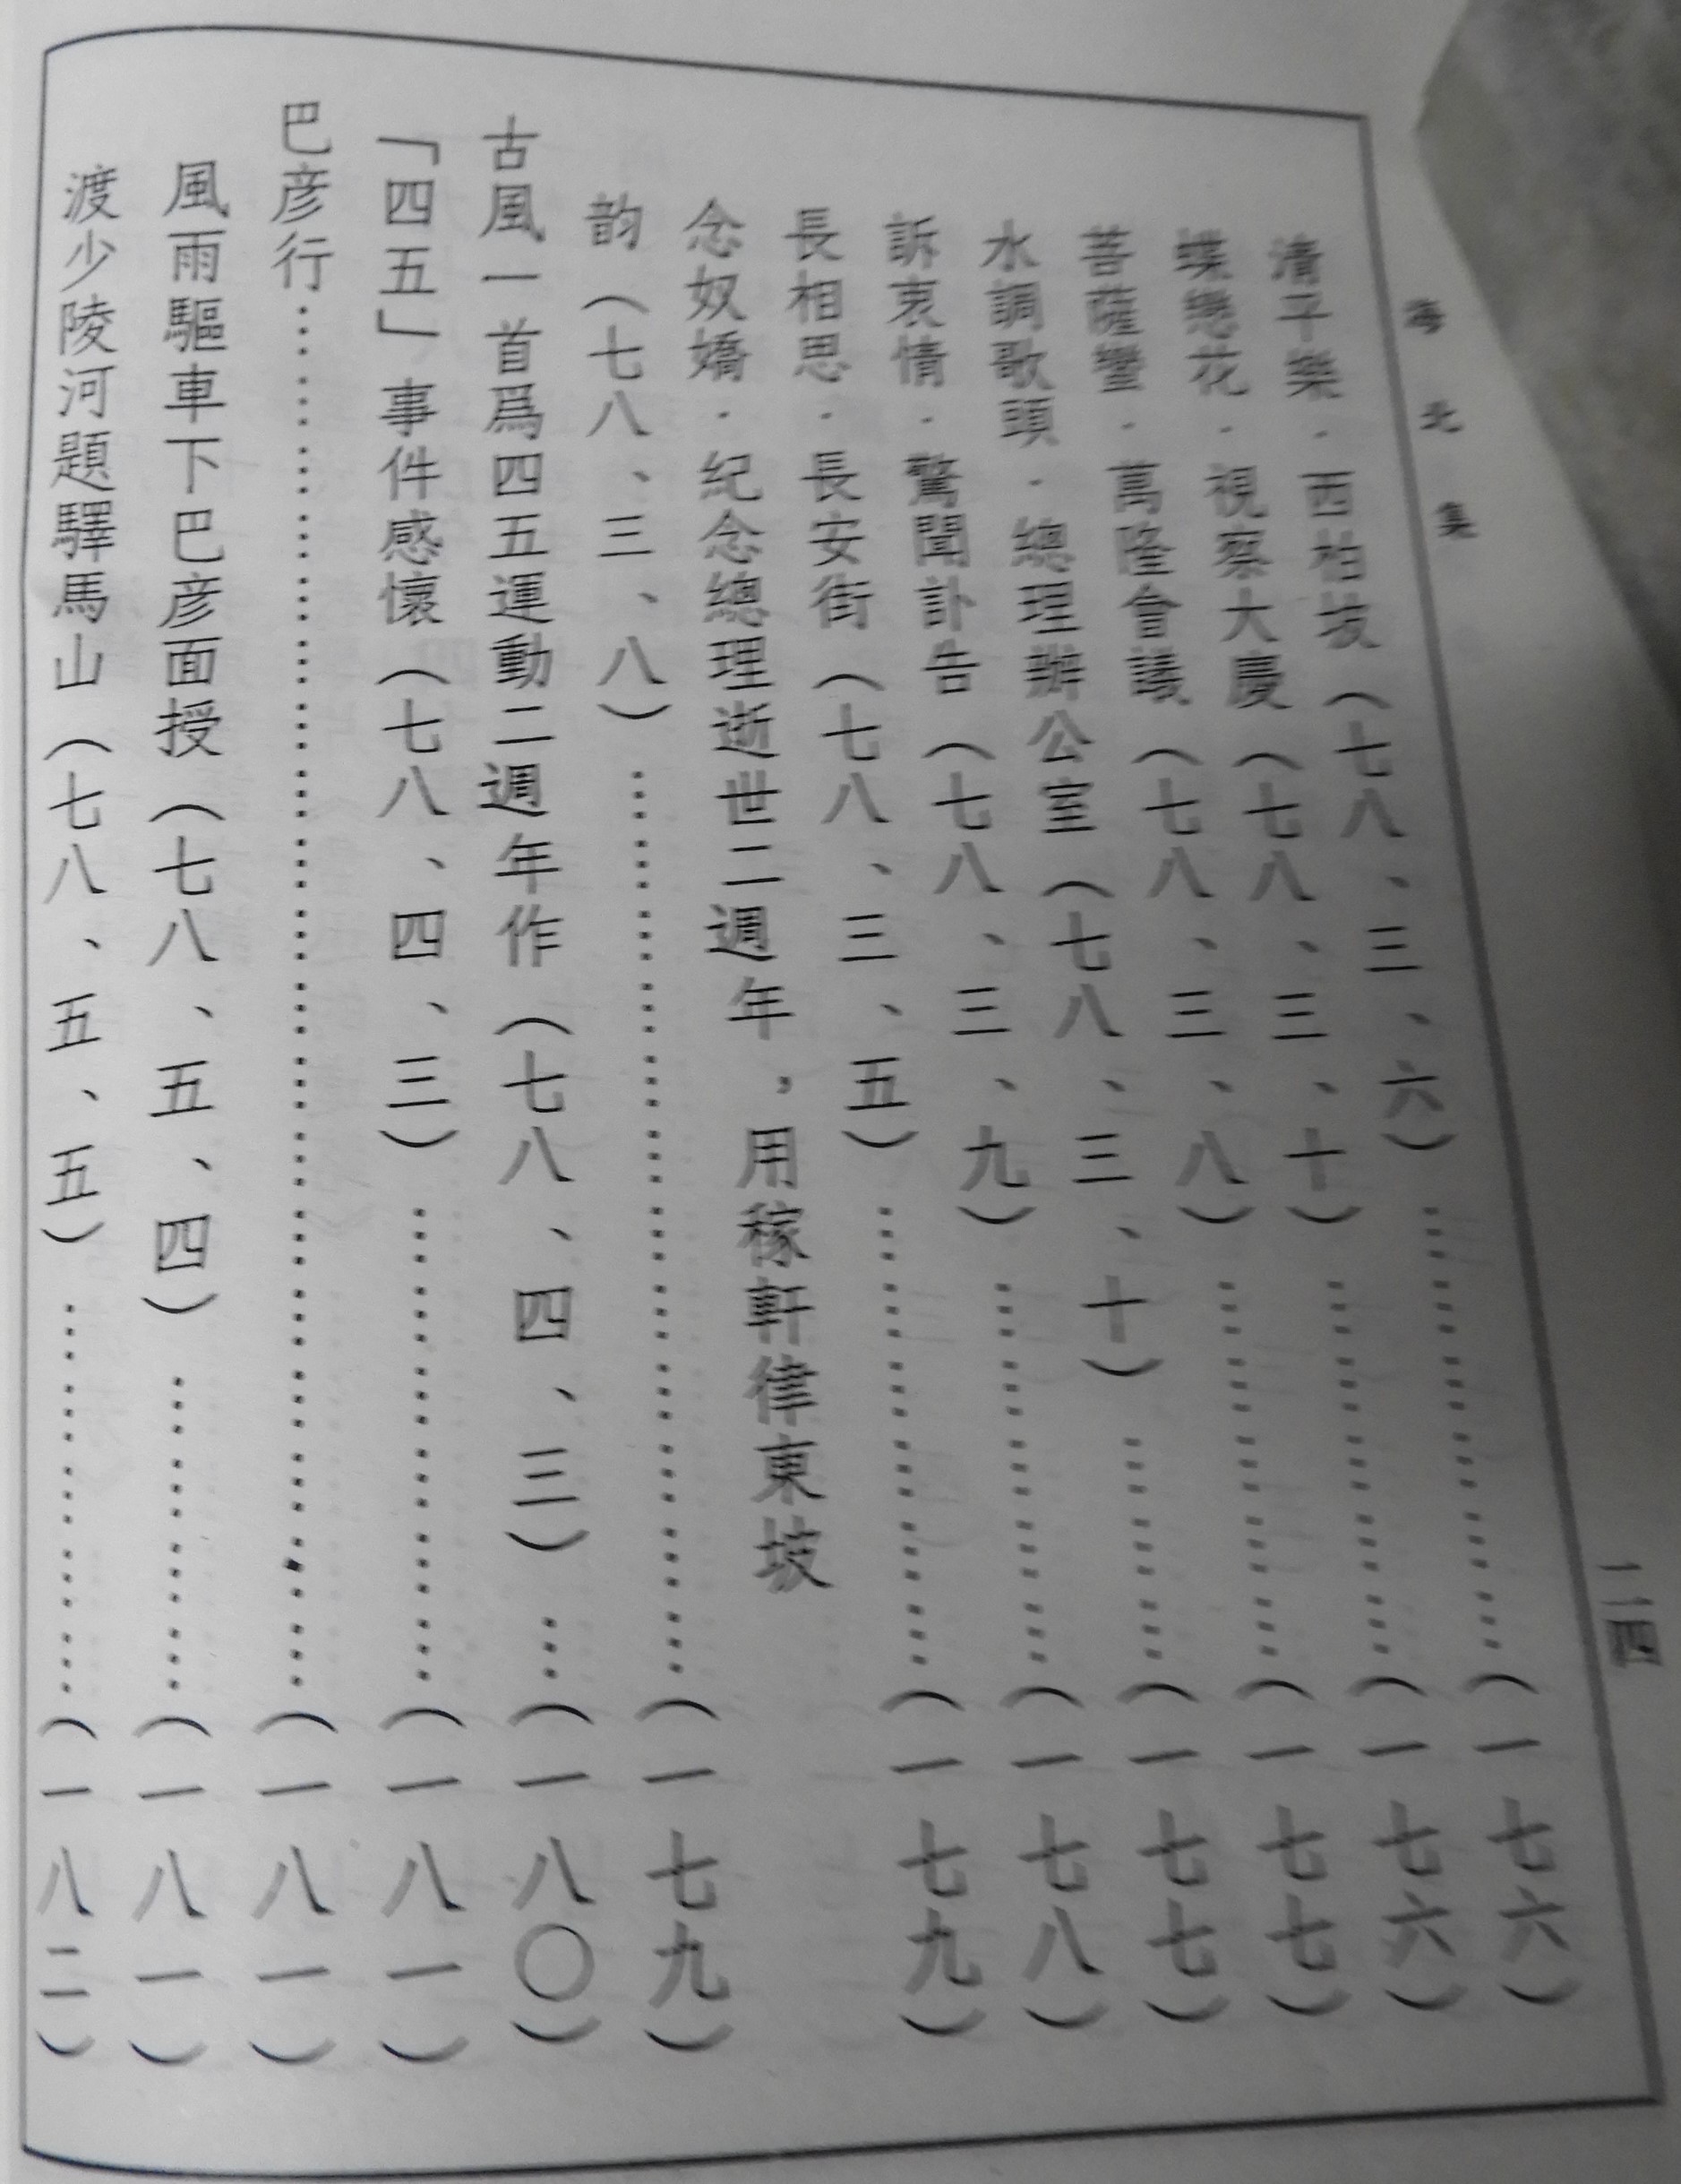 海北集
二四
清平樂·西柏坡（七八、三、六）……（一七六）
蝶戀花·視察大慶（七八、三、十）……（一七六）
菩薩蠻·萬隆會議（七八、三、八）……（一七七）
水調歌頭·總理辦公室（七八、三、十）……（一七七）
訴衷情·驚聞訃告（七八、三、九）……（一七八）
長相思·長安街（七八、三、五）……（一七九）
念奴嬌·紀念總理逝世二週年，用稼軒律東坡
韵（七八、三、八）……（一七九）
古風一首爲四五運動二週年作（七八、四、三）……（一八〇）
「四五」事件感懷（七八、四、三）……（一八一）
巴彦行……（一八一）
風雨驅車下巴彦面授（七八、五、四）……（一八一）
渡少陵河題驛馬山（七八、五、五）……（一八二）